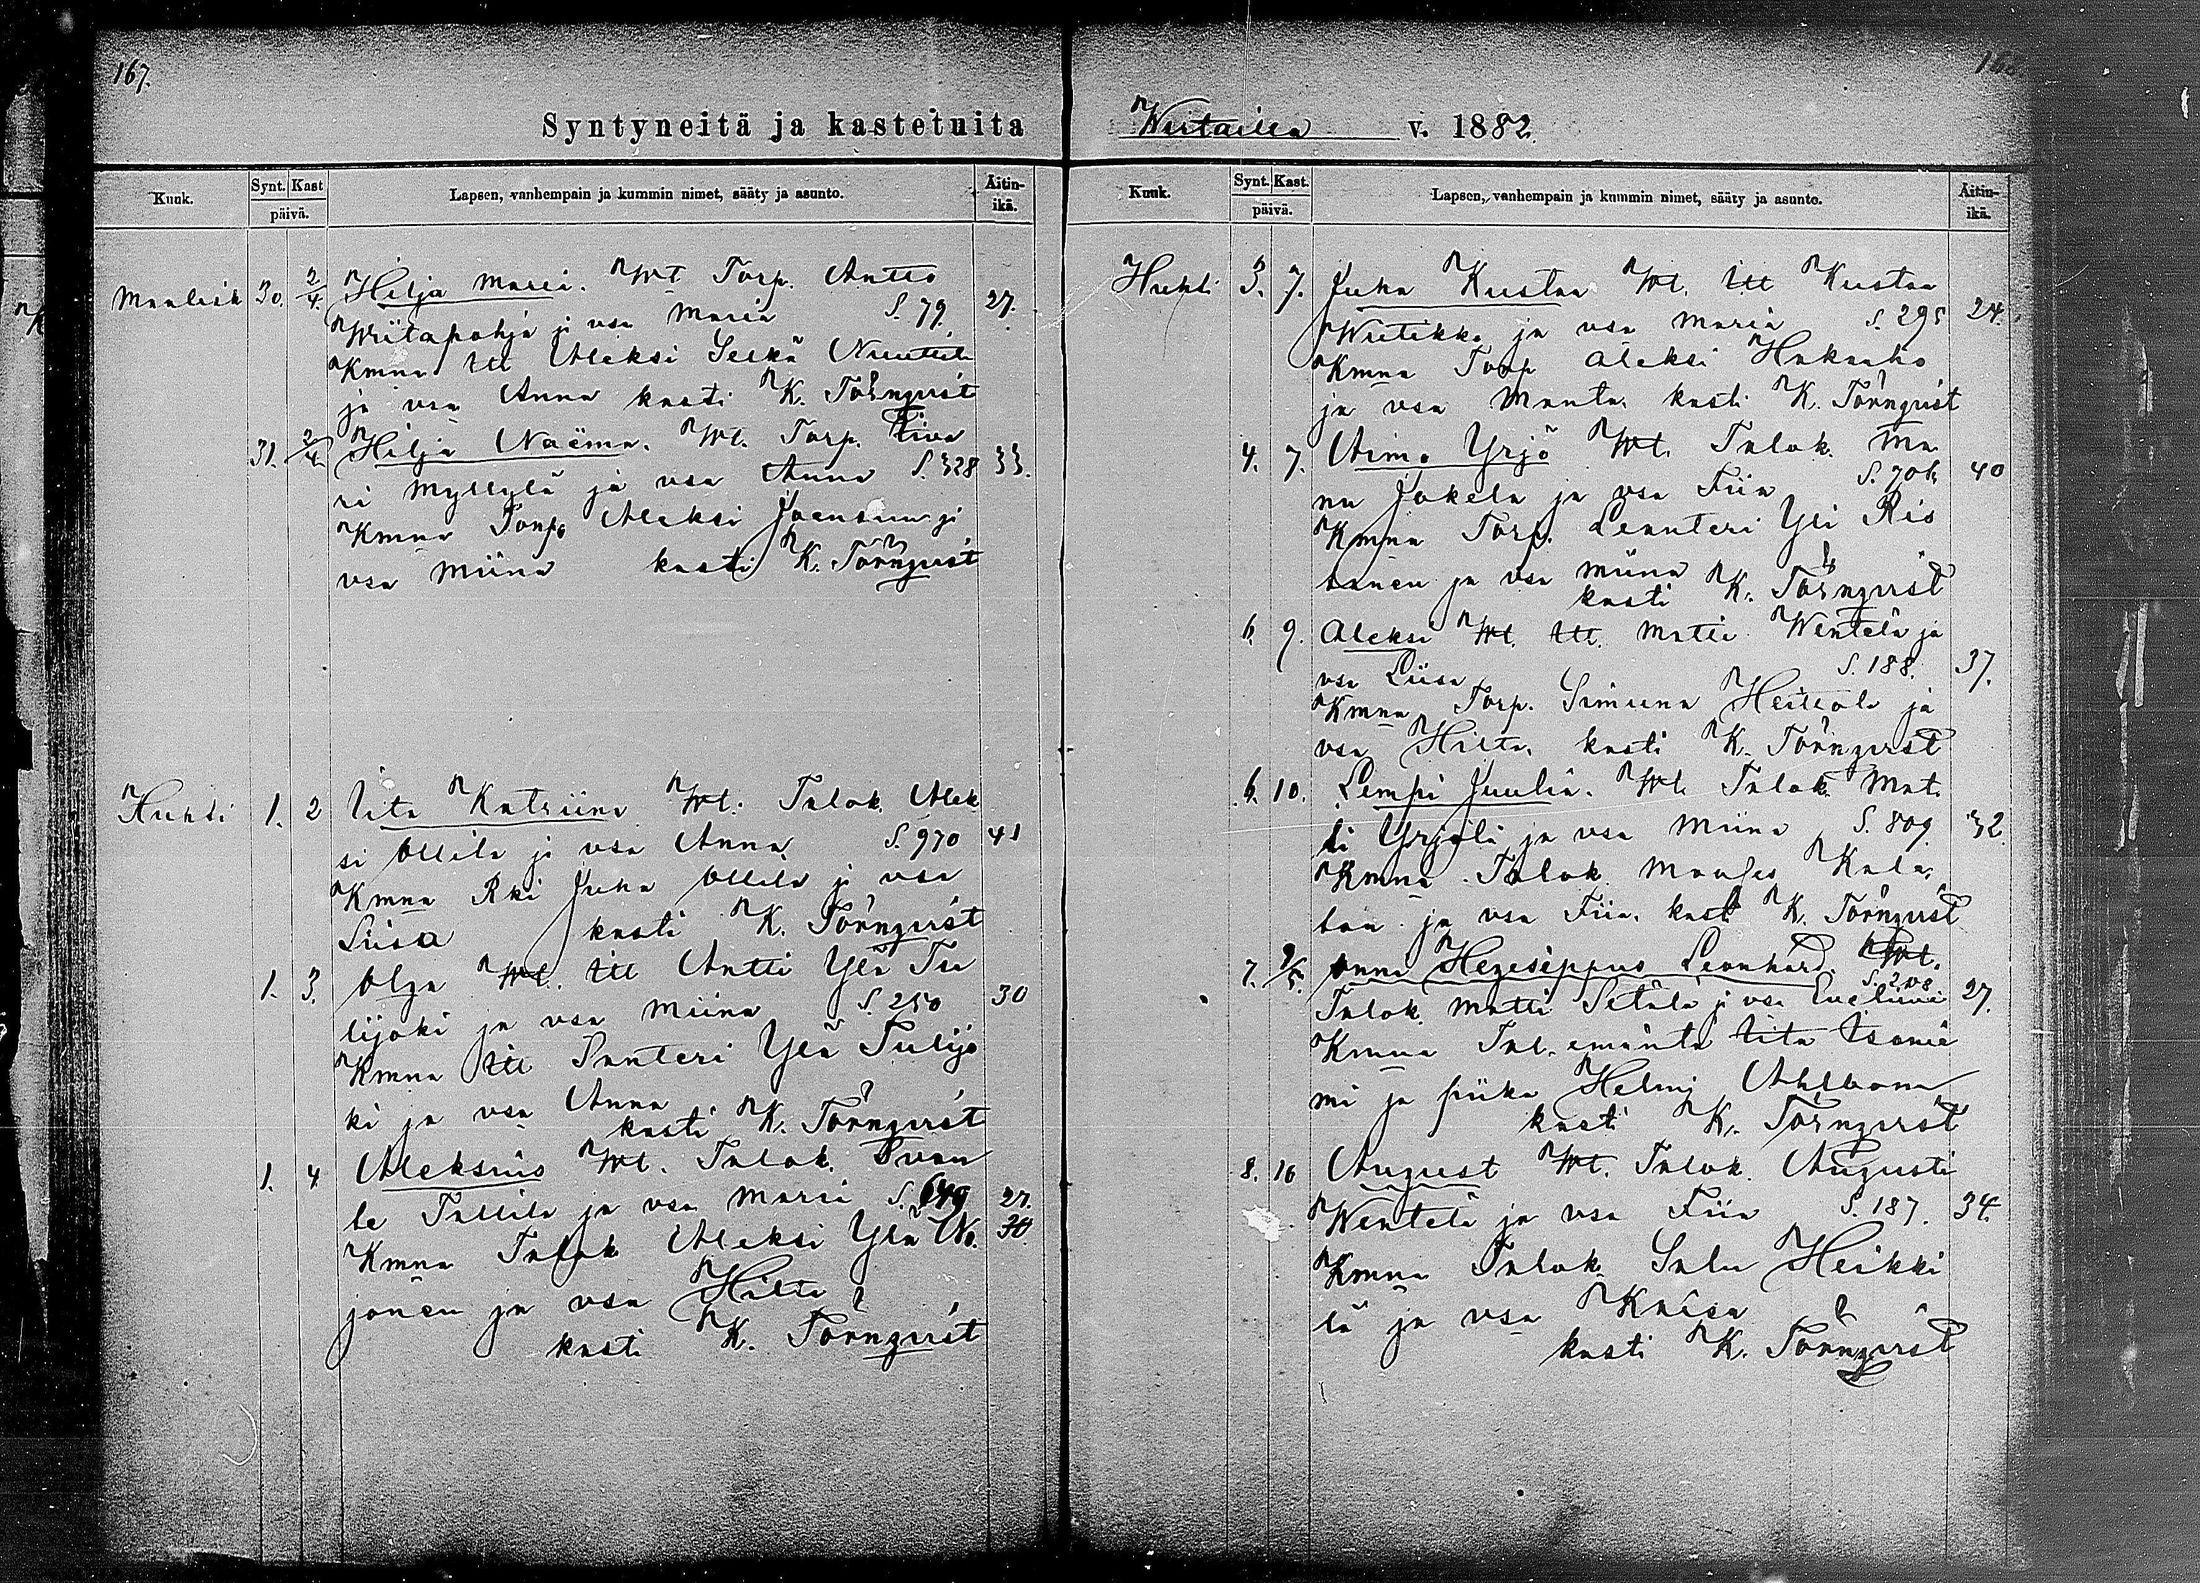 167.
Syntyneitä ja kastetuita
Kuuk.
Synt. Kast
päivä.
Lapsen, vanhempain ja kummin nimet, sääty ja asunto.
Äitin-
ikä.
Maalisk 30. 2/4. Hilja Maria. Wt Torp. Antto
Wiitapohja ja vsa Maria S. 79. 27.
Kmna Itl Aleksi Seikä
ja vsa Anna kasti K. Törnqvist
31. 2/4. Hilja Naëma. Wt. Torp. Iiva
ri Myllylä ja vsa Anna S. 328 33.
Kmna Torp. Aleksi Joensuu ja
vsa Miina kasti K. Törnqvist
Huhti 1. 2 Iita Katriina Wt. Talok. Alek
si Ollila ja vsa Anna S. 970 41
Kmna Rki Juha Ollila ja vsa
Liisa kasti K. Törnqvist
1. 3. Olga Wt. Itl Antti Ylä Tu
lijoki ja vsa Miina S. 250 30
Kmna Itl Santeri Ylä Tulijo
ki ja vsa Anna
kasti K. Törnqvist
1. 4 Aleksius Wt. Talok. Iivan
te Tallila ja vsa Maria S. 649 27.
Kmna Talok Aleksi Ylä No. 30
jonen ja vsa Hilta
kasti K. Törnqvist
v. 1882.
Kuuk.
Synt. Kast.
päivä.
Lapsen, vanhempain ja kummin nimet, sääty ja asunto.
Äitin-
ikä.
Huhti 3. 7. Juha Kustaa Wt. Itl Kustaa
Wiitikka ja vsa Maria S. 295 24.
Kmna Torp Aleksi Hakaaho
ja vsa Manta kasti K. Törnqvist
4. 7. Aimo Yrjö Wt. Talok. Ma
nu Jokela ja vsa Fiia S. 706 40
Kmna Torp. Leanteri Yli Ris
sanen ja vsa Miina
kasti K. Törnqvist
6. 9. Aleksi Wt. Itl. Matti Wentelä ja
vsa Liisa S. 188. 37.
Kmna Torp. Simuna Heikkola ja
vsa Hilta kasti K. Törnqvist
6. 10. Lempi Juulia. Wt. Talok. Mat
ti Yrjälä ja vsa Miina S. 809 32.
Kmna Talok. Maules Kala,
ton ja vsa Fiia. kast K. Törnqvist
7. 9/5. Onni Hegesippus Leonhard. Wt.
Talok. Matti Setälä ja vsa Eveliina S. 208 27.
Kmna Tal. emäntä Iita Isonie
mi ja piika Helmi Ahlbom
kasti K. Törnqvist
8. 16 August Wt. Talok. Augusti
Wentelä ja vsa Fiia S. 187. 34.
Kmna Talok. Salu Heikki
lä ja vsa Kaisa
kasti K. Törnqvist